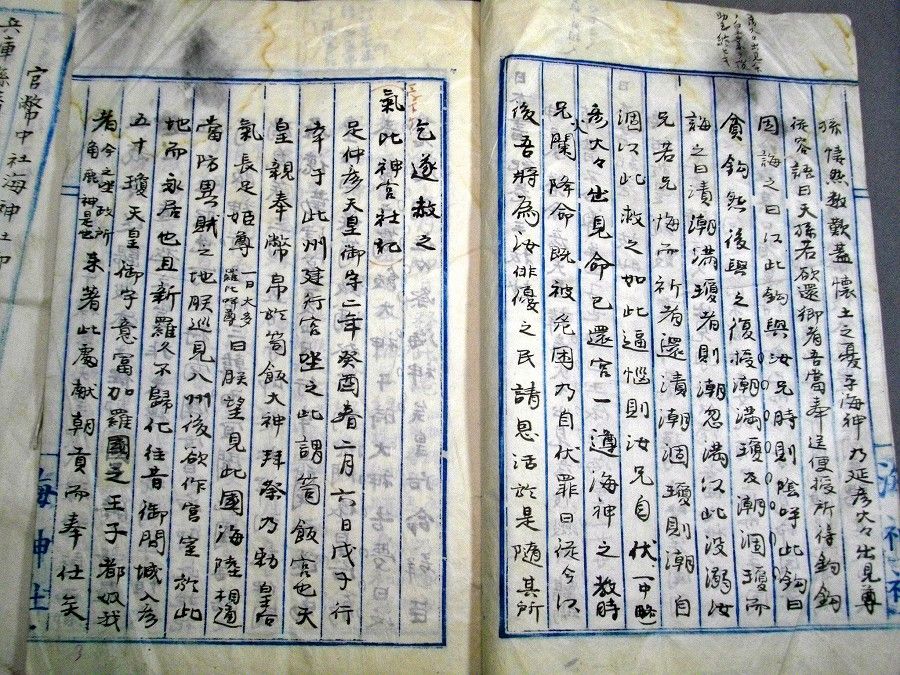 孫悽然数歎蓋懐土之憂乎海神乃延彦火々出見尊
従容語曰天孫若欲還郷者吾當奉送便授所得釣鈎
因誨之曰以此鈎與汝兄時則陰呼此鈎曰
貧鈎然後與之復授潮満瓊及潮涸瓊而
誨之曰漬潮満瓊者則潮忽満以此没溺汝
兄若兄悔而祈者還漬潮涸瓊則潮自
涸以此救之如此逼悩則汝兄自伏(中略
彦火々出見命已還宮一遵海神之教時
兄火闌降命既被危困乃自伏罪曰従今以
後吾将為汝俳優之民請恩活於是随其所
乞遂赦之
氣比神宮社記
足仲彦天皇御宇二年癸酉春二月六日戊子行
幸于此州建行宮坐之此謂笥飯宮也天
皇親奉幣帛於笥飯大神拜祭乃勅皇后
氣長足姫尊一曰大多羅比咩尊曰朕望見此國海陸相通
當防異賊之地朕巡見八州後欲作宮室於此
地而永居也且新羅久不歸化往昔御間城入彦
五十瓊天皇御宇意富加羅國之王子都奴我
者今之坐政所角鹿神是也来著此處献朝貢而奉仕矣
海神社
官幣中社海神社
兵庫縣